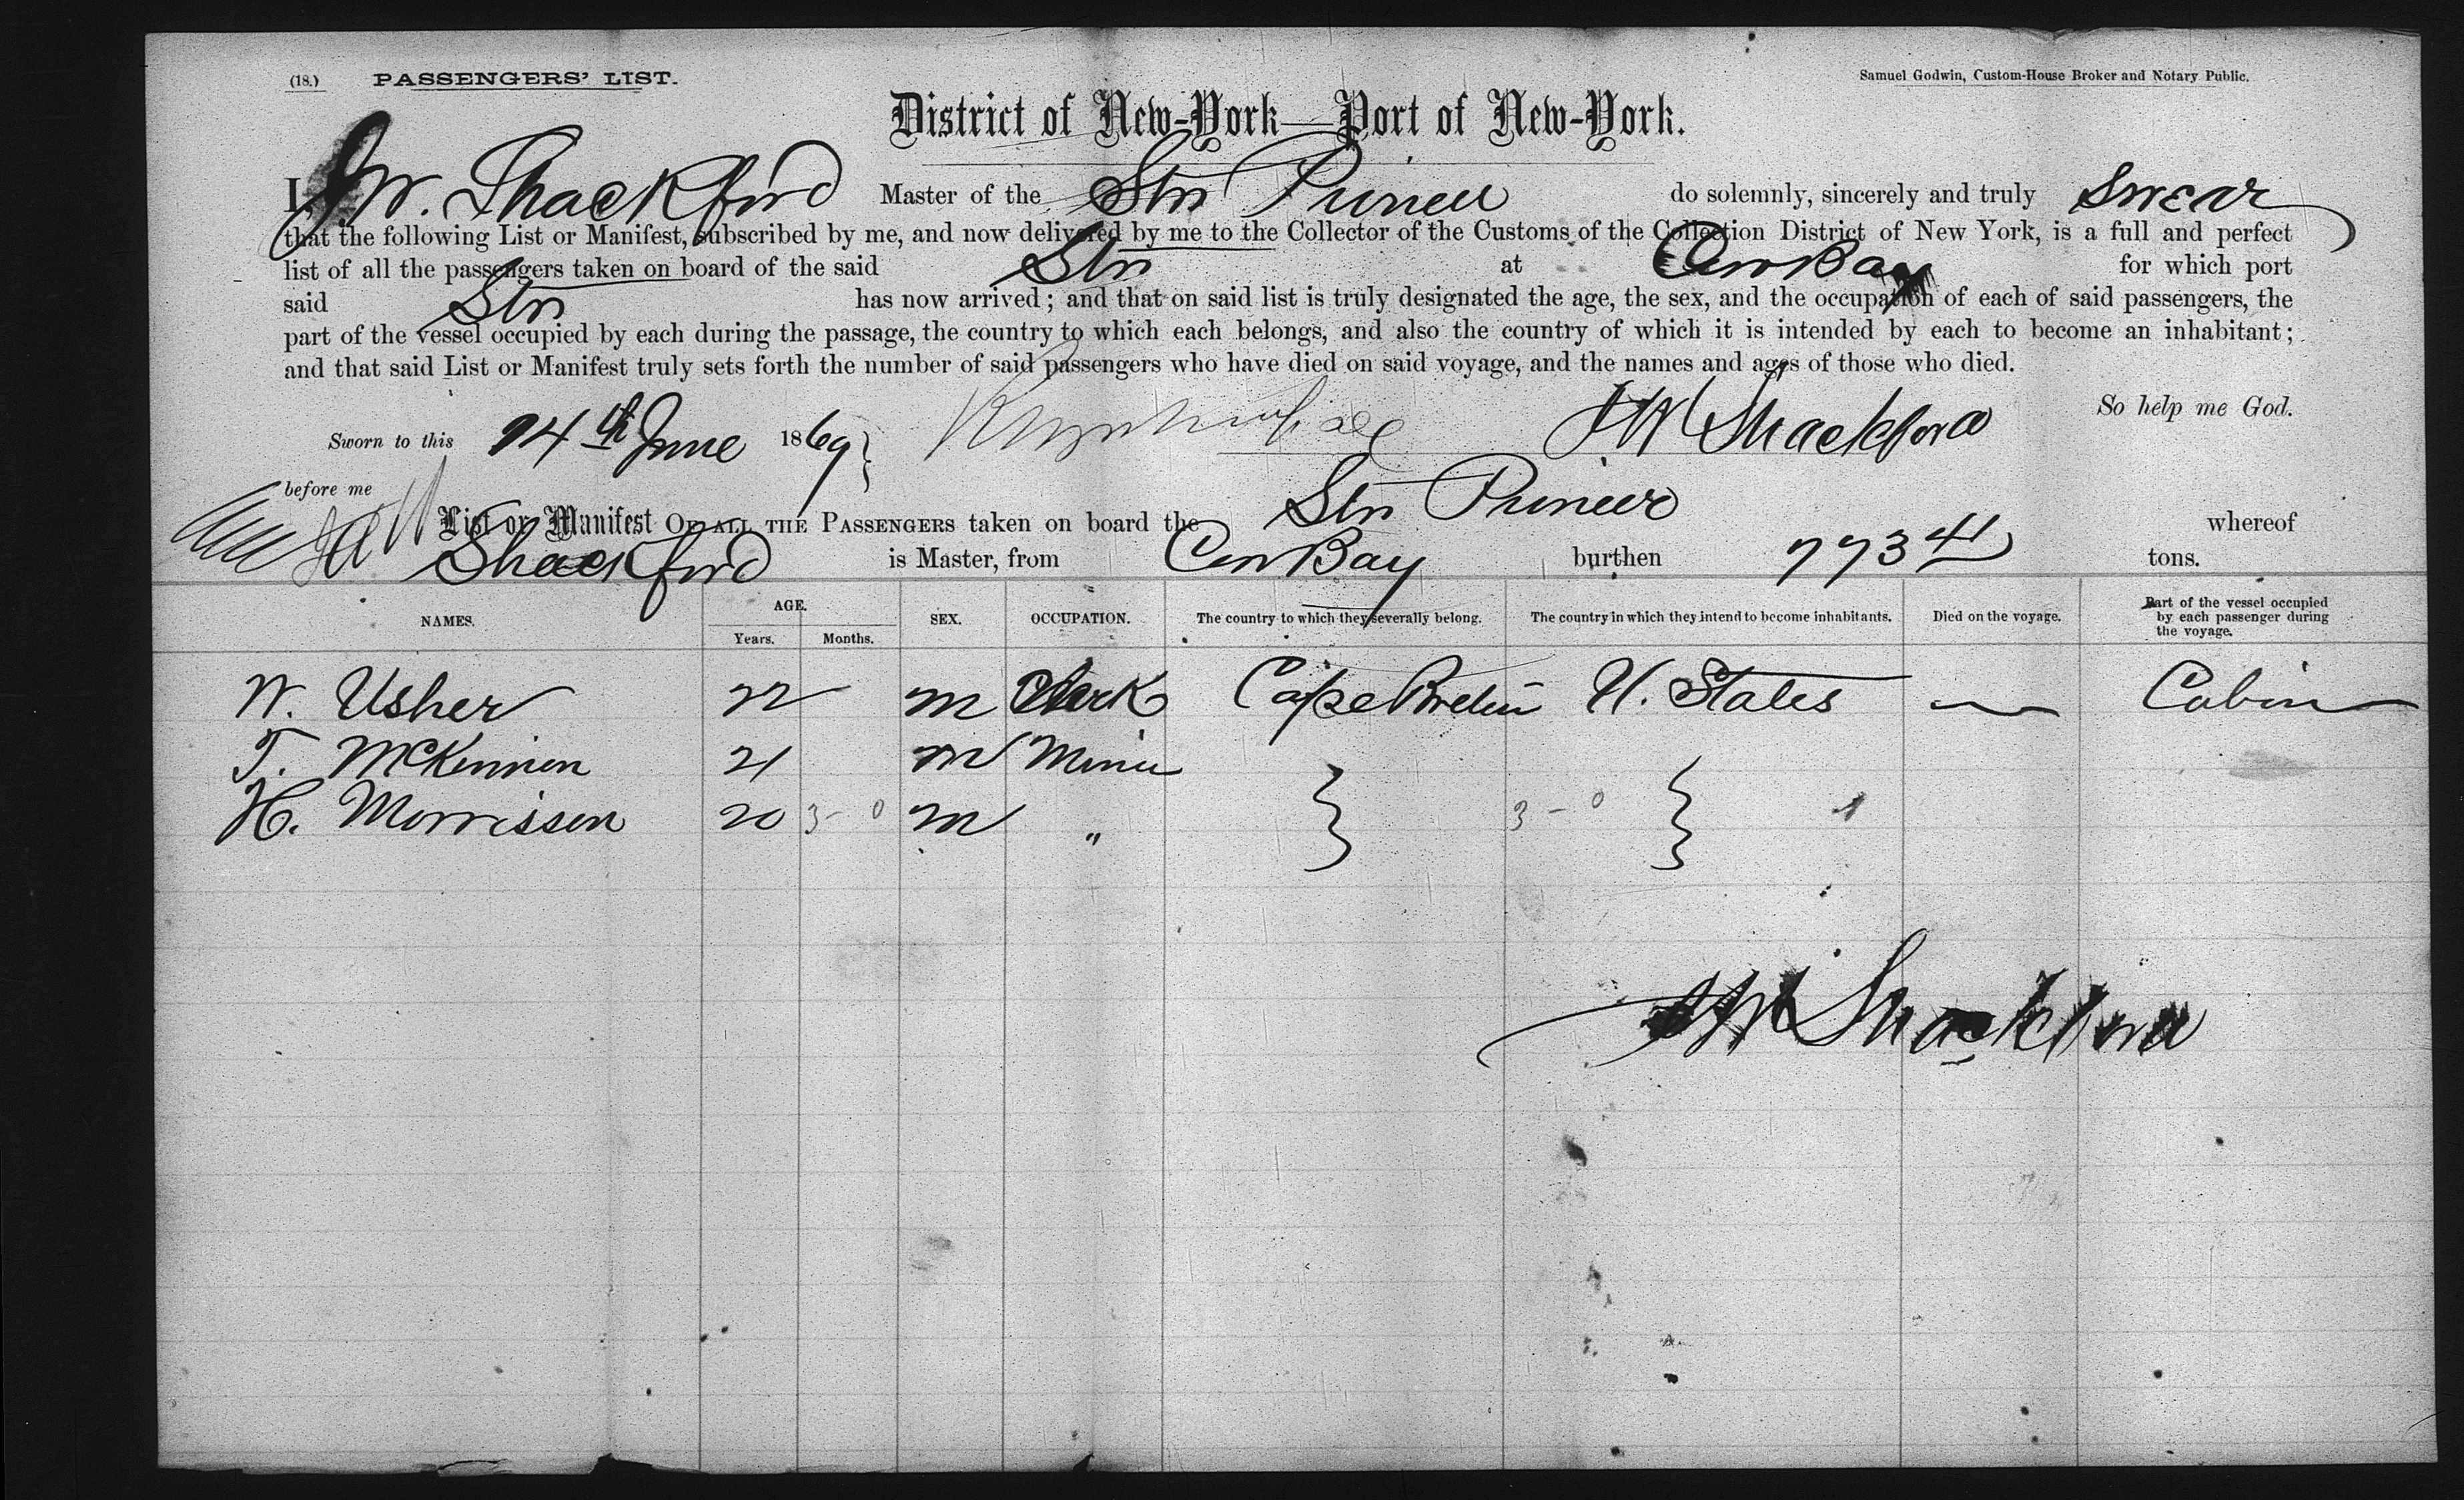 (18.) PASSENGERS' LIST. Samuel Godwin, Custom-House Broker and Notary Public.
District of New-York—Port of New-York.
I, J W. Shackford Master of the Str Pioneer do solemnly, sincerely and truly swear
that the following List or Manifest, subscribed by me, and now delivered by me to the Collector of the Customs of the Collection District of New York, is a full and perfect
list of all the passengers taken on board of the said Str at Cow Bay for which port
said Str has now arrived; and that on said list is truly designated the age, the sex, and the occupation of each of said passengers, the
part of the vessel occupied by each during the passage, the country to which each belongs, and also the country of which it is intended by each to become an inhabitant;
and that said List or Manifest truly sets forth the number of said passengers who have died on said voyage, and the names and ages of those who died.
So help me God.
Sworn to this 14th June 1869 } J W Shackford
before me
List or Manifest OF ALL THE PASSENGERS taken on board the Str Pioneer whereof
Shackford is Master, from Cow Bay burthen 773 41 tons.
NAMES. AGE. Years. Months. SEX. OCCUPATION. The country to which they severally belong. The country in which they intend to become inhabitants. Died on the voyage. Part of the vessel occupied by each passenger during the voyage.
W. Usher 22 M Clerk Cape Breton U. States — Cabin
T. McKinnon 21 M Miner } }
H. Morrisson 20 3 - 0 M " 3 - 0
J W Shackford